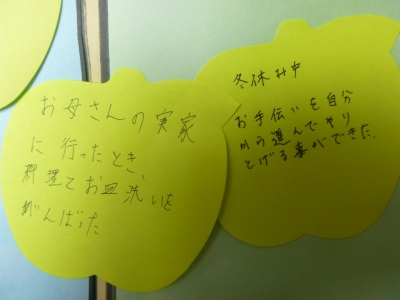 お母さんの実家
に行ったとき、
料理とお皿洗いを
がんばった
冬休み中
お手伝いを自分
から進んでやり
とげる事ができた。